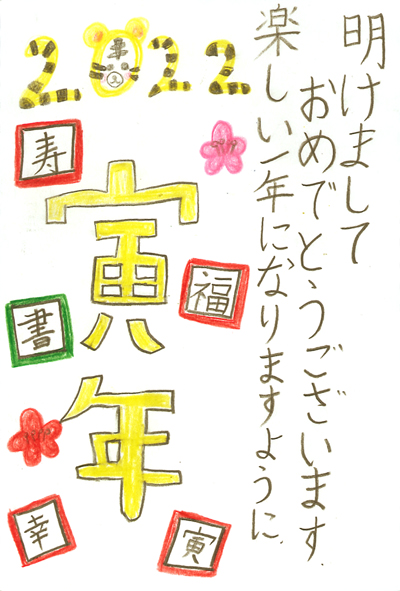 明けまして
おめでとうございます
楽しい一年になりますように
2022
寿
寅年
福
書
幸
寅